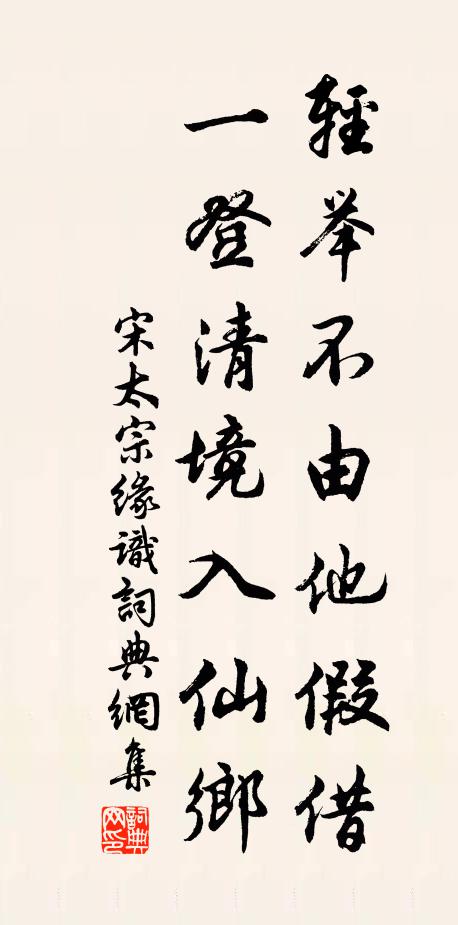 輕举不由他假借
一登清境入仙鄉
宋太宗緣識詞典網集
詞典网印